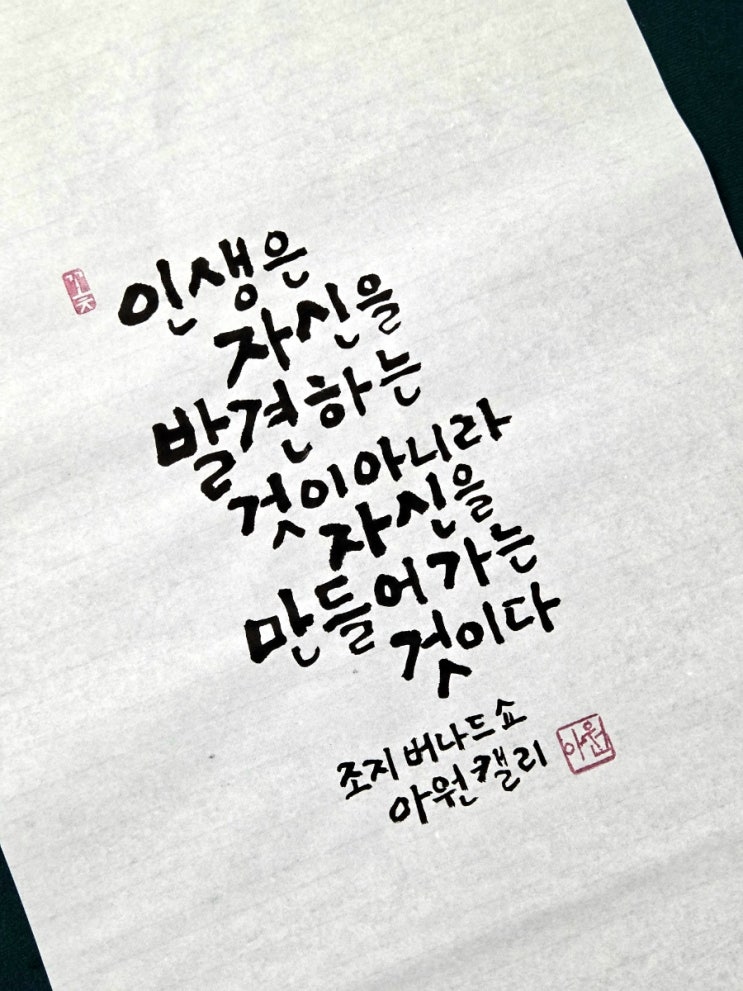 인생은
자신을
발견하는
것이아니라
자신을
만들어가는
것이다
조지 버나드 쇼
아원캘리
아원